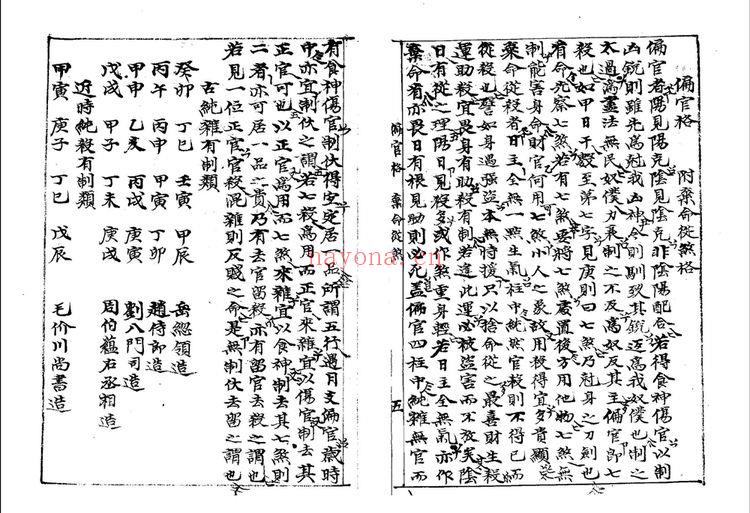 偏官格 附棄命從煞格
偏官者陽見陽克陰見陰克非陰陽配合若得食神傷官以制
凶銳則雖先為尅我凶神今則馴致其銳邁為我奴僕也制之
太過為盡法無民奴僕力衰制之不及為奴反其主偏官即七
殺也如甲日干殺至第七字見庚則曰七煞乃尅身之刀劍也
有命先察七煞若有七煞要將七煞處置後方用他物七煞無
制能害身命財官何用七煞小人之象故用殺得宜多貴顯
棄命從殺者日主全無一點生氣柱中純然官殺則不得已而
從殺也譬如身遇强盜本無特援只以捨命從之最喜財生殺
運助殺宜畏身有助殺有制若違此運必被盜害而不放矣陰
日有從之理陽日見殺多或作煞重身輕若日主全無氣亦作
棄命者亦畏日有根見助則必死盖偏官四柱中純雜無官而
偏官格 棄命從煞 五
有食神傷官制伏得宜定居一品所謂五行遇月支偏官歲時
中亦宜制伏之謂若七殺為用而正官來雜宜以傷官制去其
正官可也以正官為用而七煞來雜宜以食神制去其七煞則
二者亦可居一品之貴乃有去官留殺亦有留官去殺之謂也
若見一位正官官殺混雜則反賤之命是無制伏去留之謂也
古純雜有制類
癸卯 丁巳 壬寅 甲辰 岳總領造
丙午 丙申 甲寅 丁卯 趙侍郎造
甲申 乙亥 丙戌 庚寅 劉八門司造
戊戌 甲子 丁未 庚戌 周伯蘊右丞相造
近時純殺有制類
甲寅 庚子 丁巳 戊辰 毛价川尚書造
nayona.cn